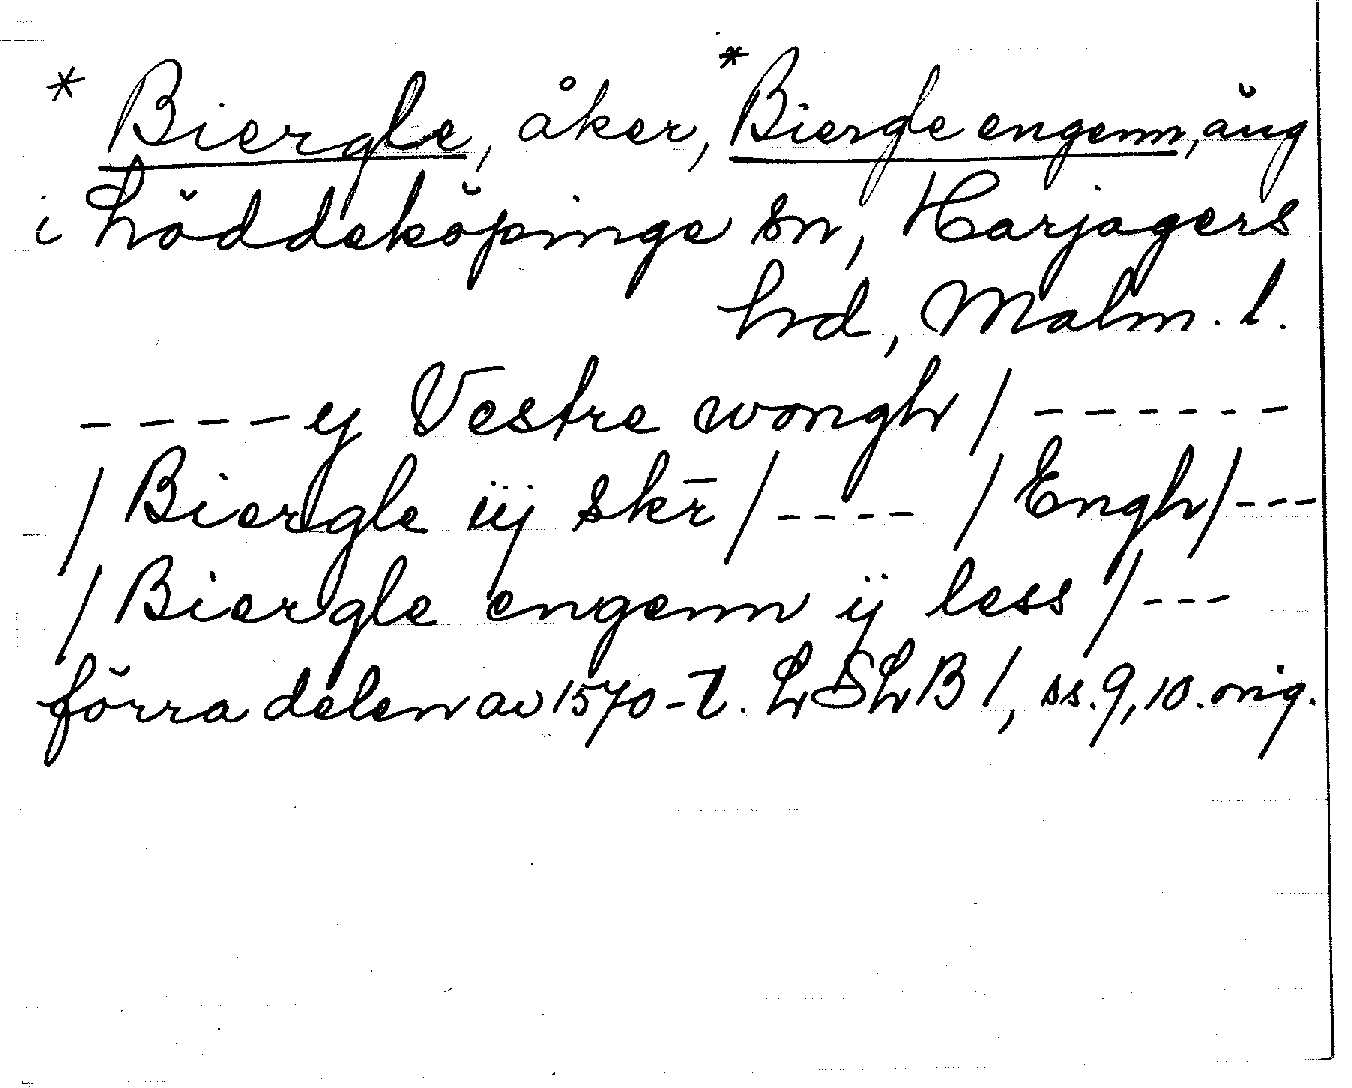 * Biergle, åker, * Biergle engenn, äng
i Löddeköpinge sn, Harjagers
hrd, Malm. l.
----ij Vestre wongh / ------
/ Biergle iij skr̄ / ---- / Engh / ---
/ Biergle engenn ij less / ---
förra delen av 1570-t. LSLB 1, ss. 9, 10. orig.